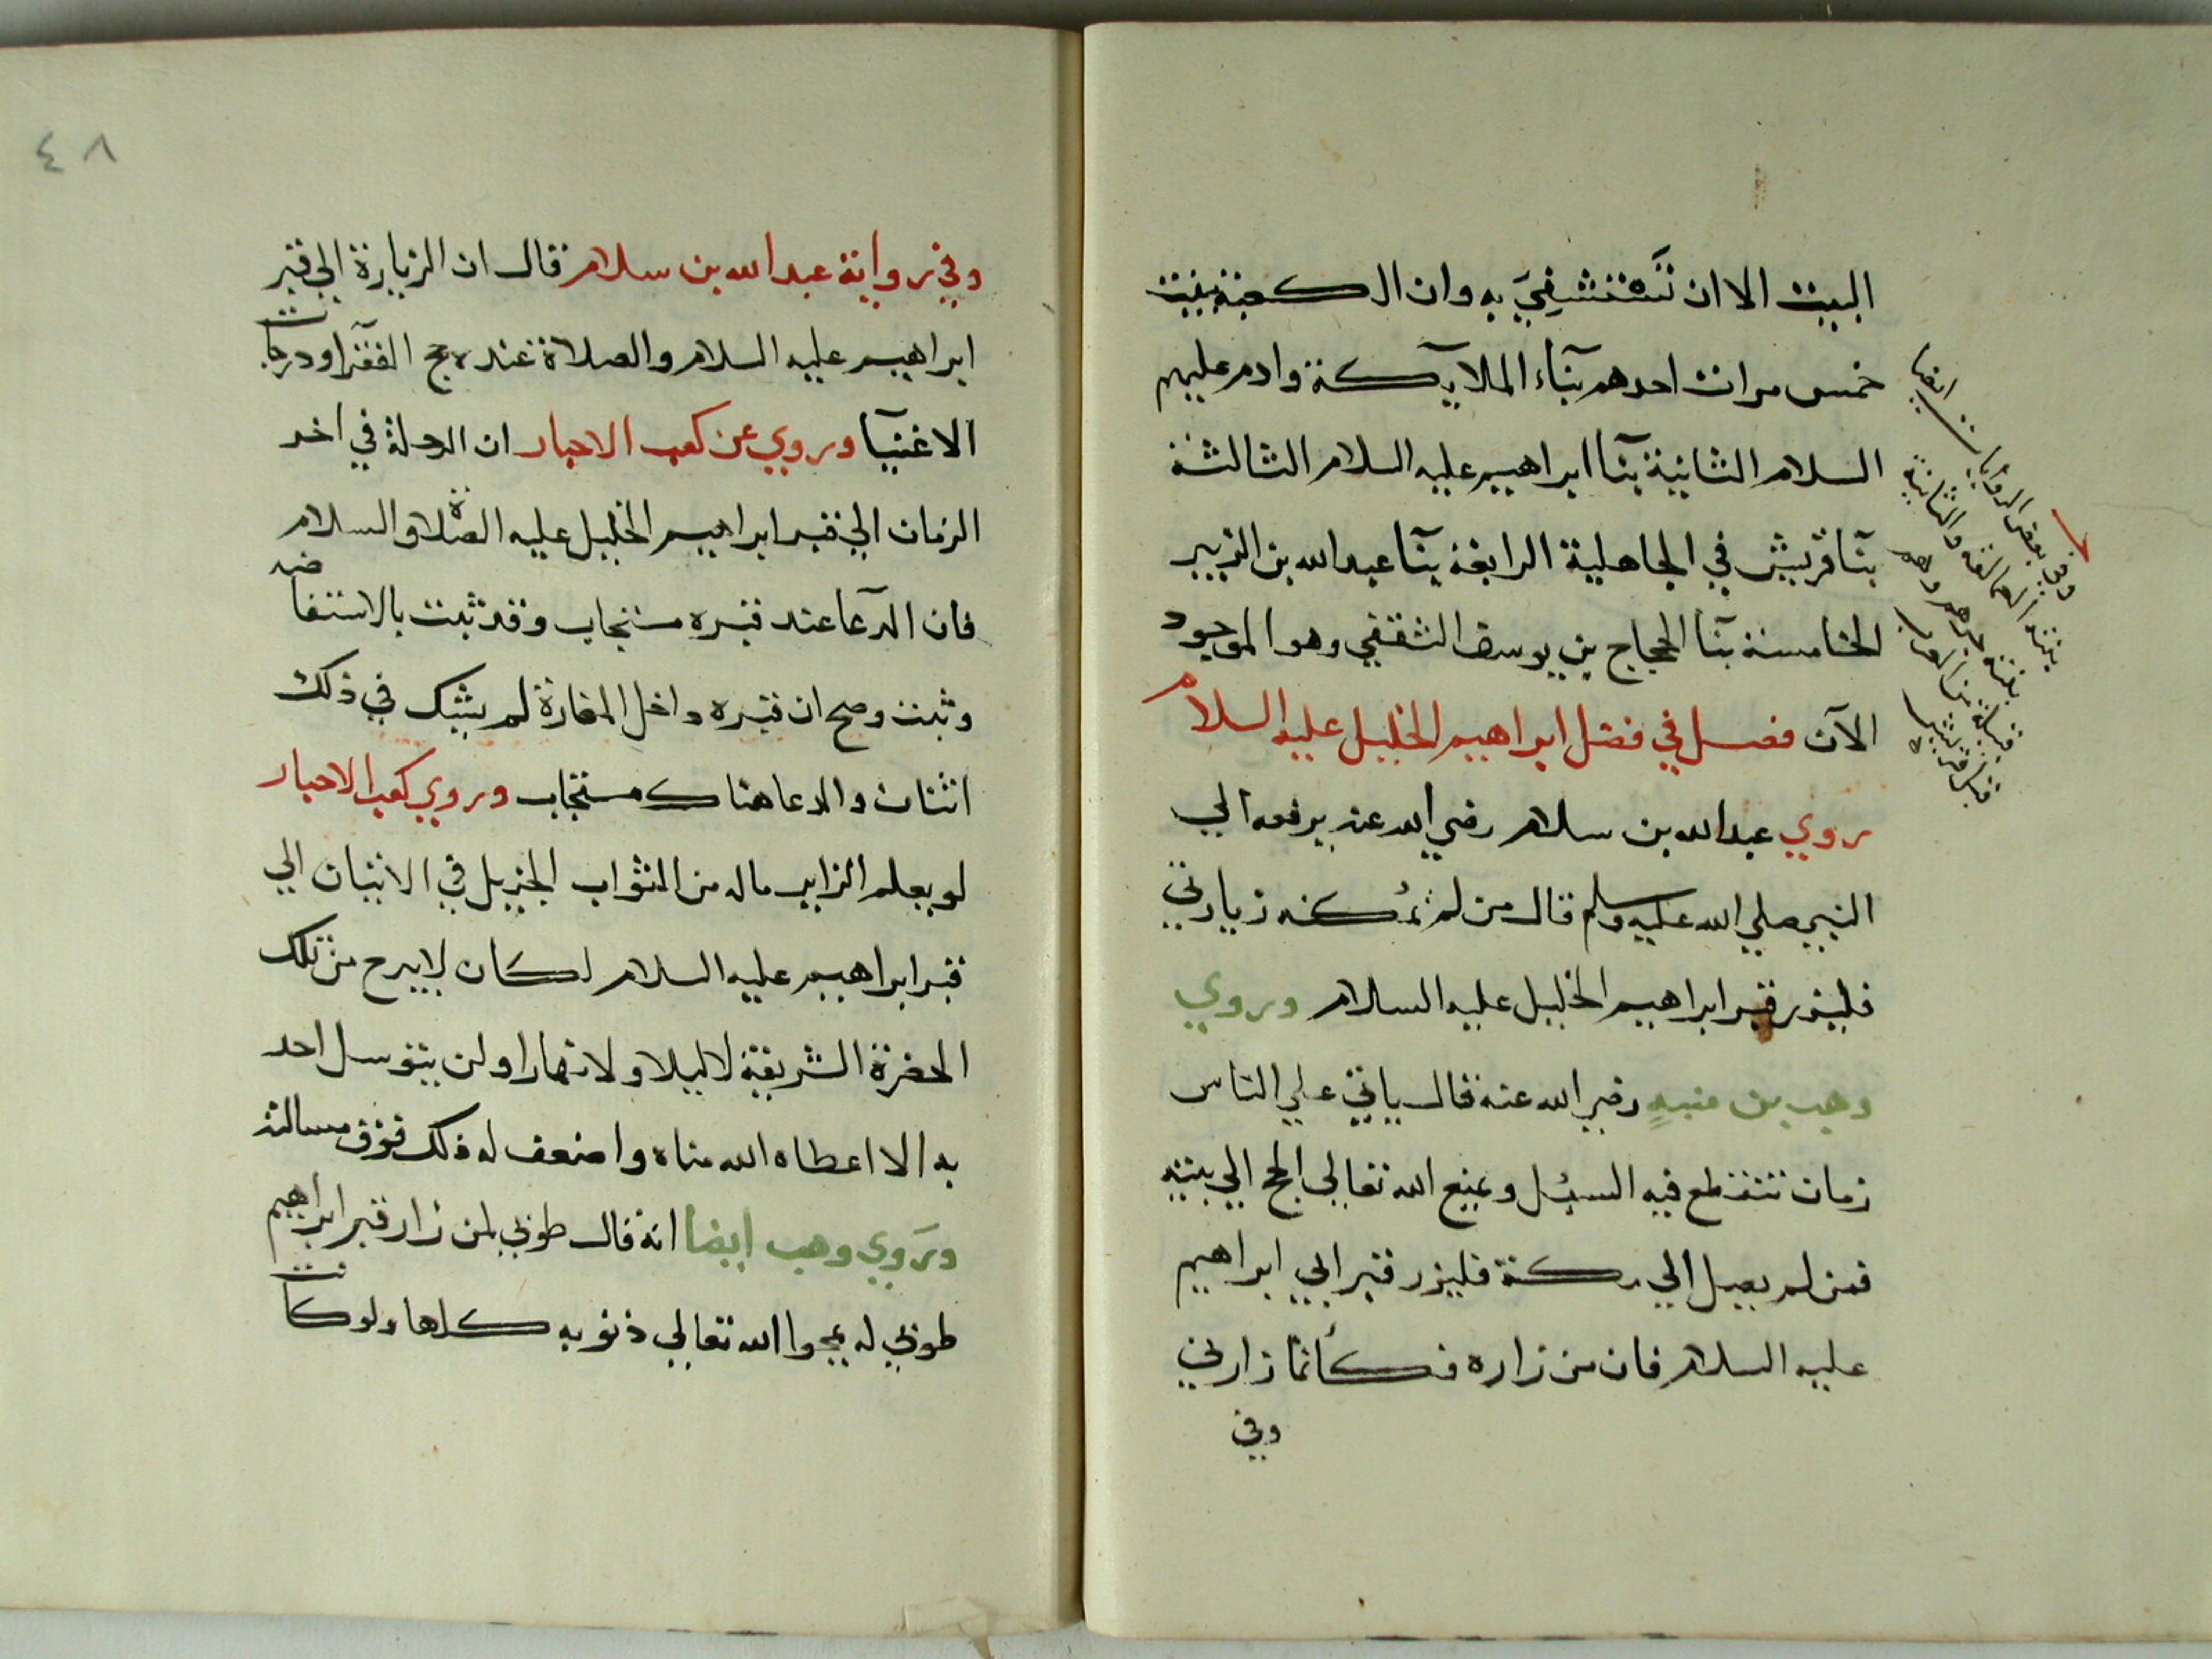 البيت الا ان تستشفي به وان الكعبة بنيت
خمس مرات احدهم بنآء الملآيكة وادم عليهم
السلام الثانية بنآ ابراهيم عليه السلام الثالثة
بنآ قريش في الجاهلية الرابعة بنآ عبد الله بن الزبير
الخامسة بنآ الحجاج بن يوسف الثقفي وهو الموجود
الآن فصل في فضل ابراهيم الخليل عليه السلام
روي عبد الله بن سلام رضي الله عنه يرفعه الي
النبي صلي الله عليه وسلم قال من لم تمكنه زيارتي
فليزر قبر ابراهيم الخليل عليه السلام وروي
وهب بن منبه رضي الله عنه قال ياتي علي الناس
زمان تنقطع فيه السبل ويمنع الله تعالي الحج الي بيته
فمن لم يصل الي مكة فليزر قبر ابي ابراهيم
عليه السلام فان من زاره فكأنما زارني
وفي
وفي بعض الروايات ايضا
بنته العمالقة والثانية
بنته جرهم وهم
قبيلة من العرب
قبل قريش
٤٨
وفي رواية عبد الله بن سلام قال ان الزيارة الي قبر
ابراهيم عليه السلام والصلاة عنده حج الفقرآ ودرجات
الاغنيآ وروي عن كعب الاحبار ان الرحلة في اخر
الزمان الي قبر ابراهيم الخليل عليه الصلاة والسلام
فان الدعآ عند قبره مستجاب وقد ثبت بالاستفاضه
وثبت وصح ان قبره داخل المغارة لم يشك في ذلك
اثنان والدعا هناك مستجاب وروي كعب الاحبار
لو يعلم الزاير ماله من الثواب الجزيل في الاتيان الي
قبر ابراهيم عليه السلام لكان لا يبرح من تلك
الحضرة الشريفة لا ليلا ولا نهارا ولن يتوسل احد
به الا اعطاه الله مناه واضعف له ذلك فوق مسالته
وروي وهب ايضا انه قال طوبي لمن زار قبر ابراهيم
طوبي له يمحوا الله تعالي ذنوبه كلها ولو كانت